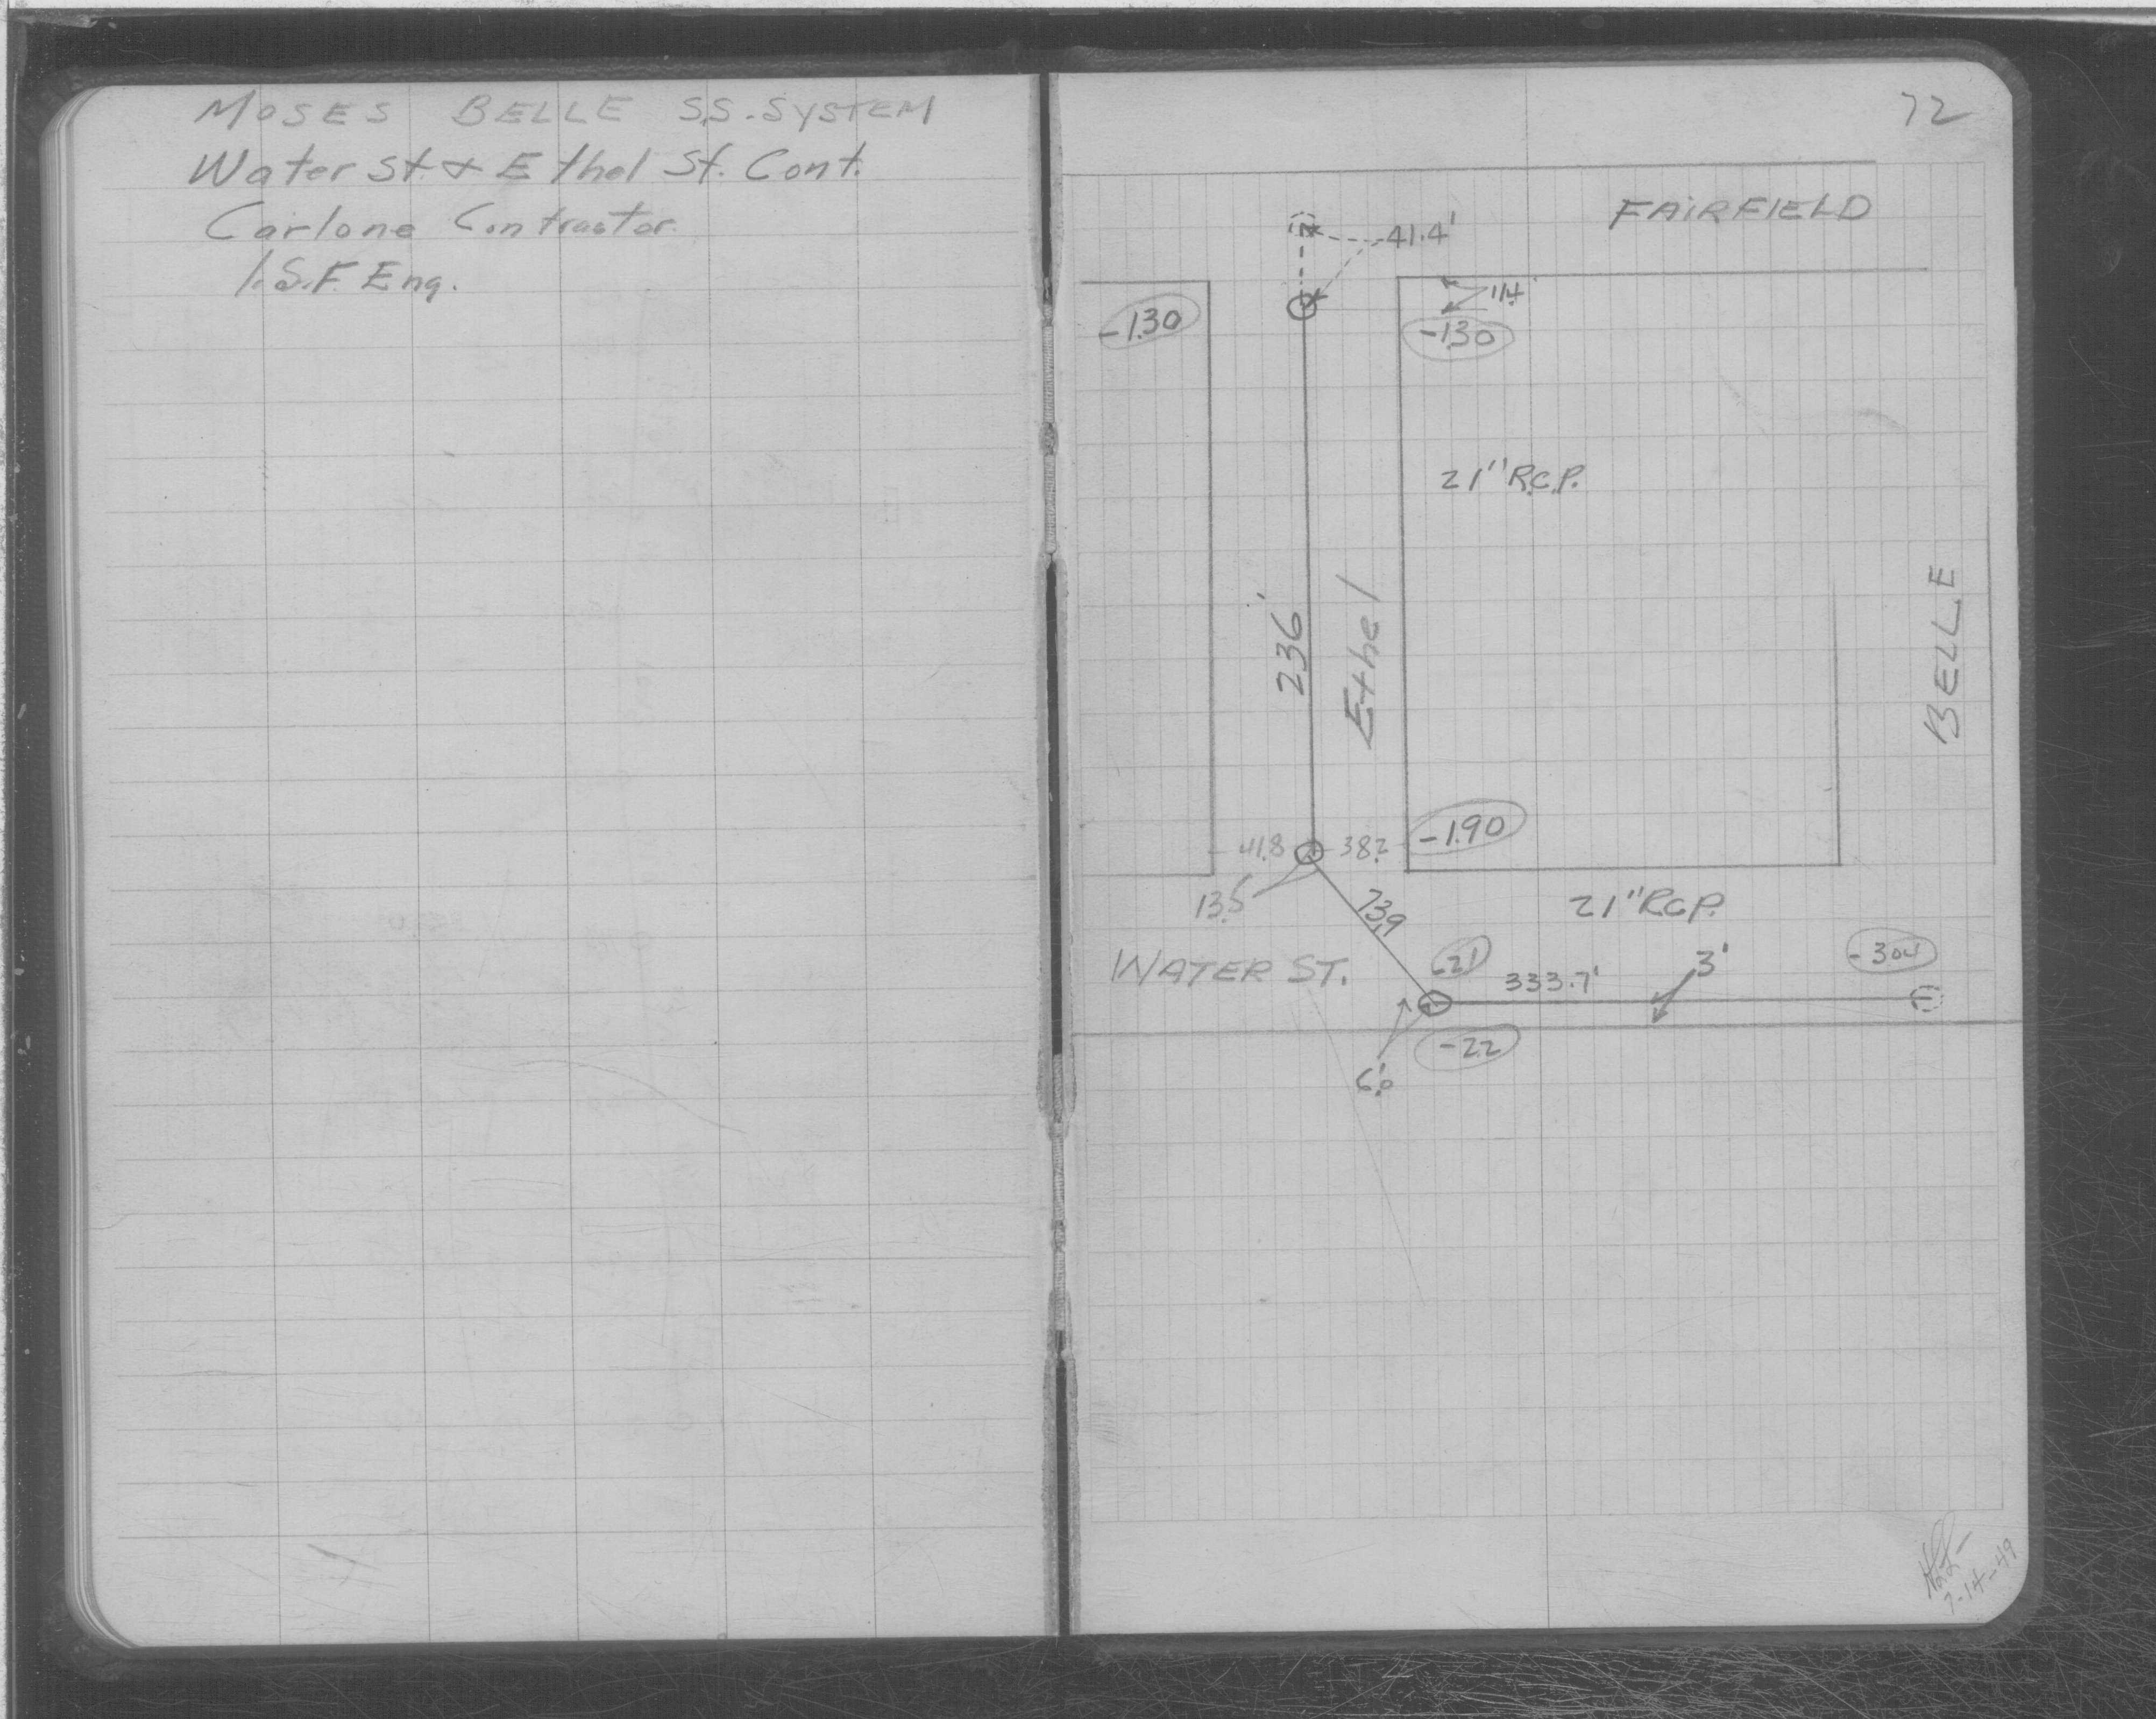 MOSES BELLE S.S. SYSTEM
Water St. & Ethel St. Cont.
Carlone Contractor.
I.S.F. Eng.
72
FAIRFIELD
41.4'
11.4'
-1.30
-1.30
21" R.C.P.
236'
Ethel
BELLE
-1.90
41.8
38.2
13.5'
73.9
21" R.C.P.
WATER ST.
-2.1
333.7'
3'
-3.04
-2.2
6.0'
7-14-49